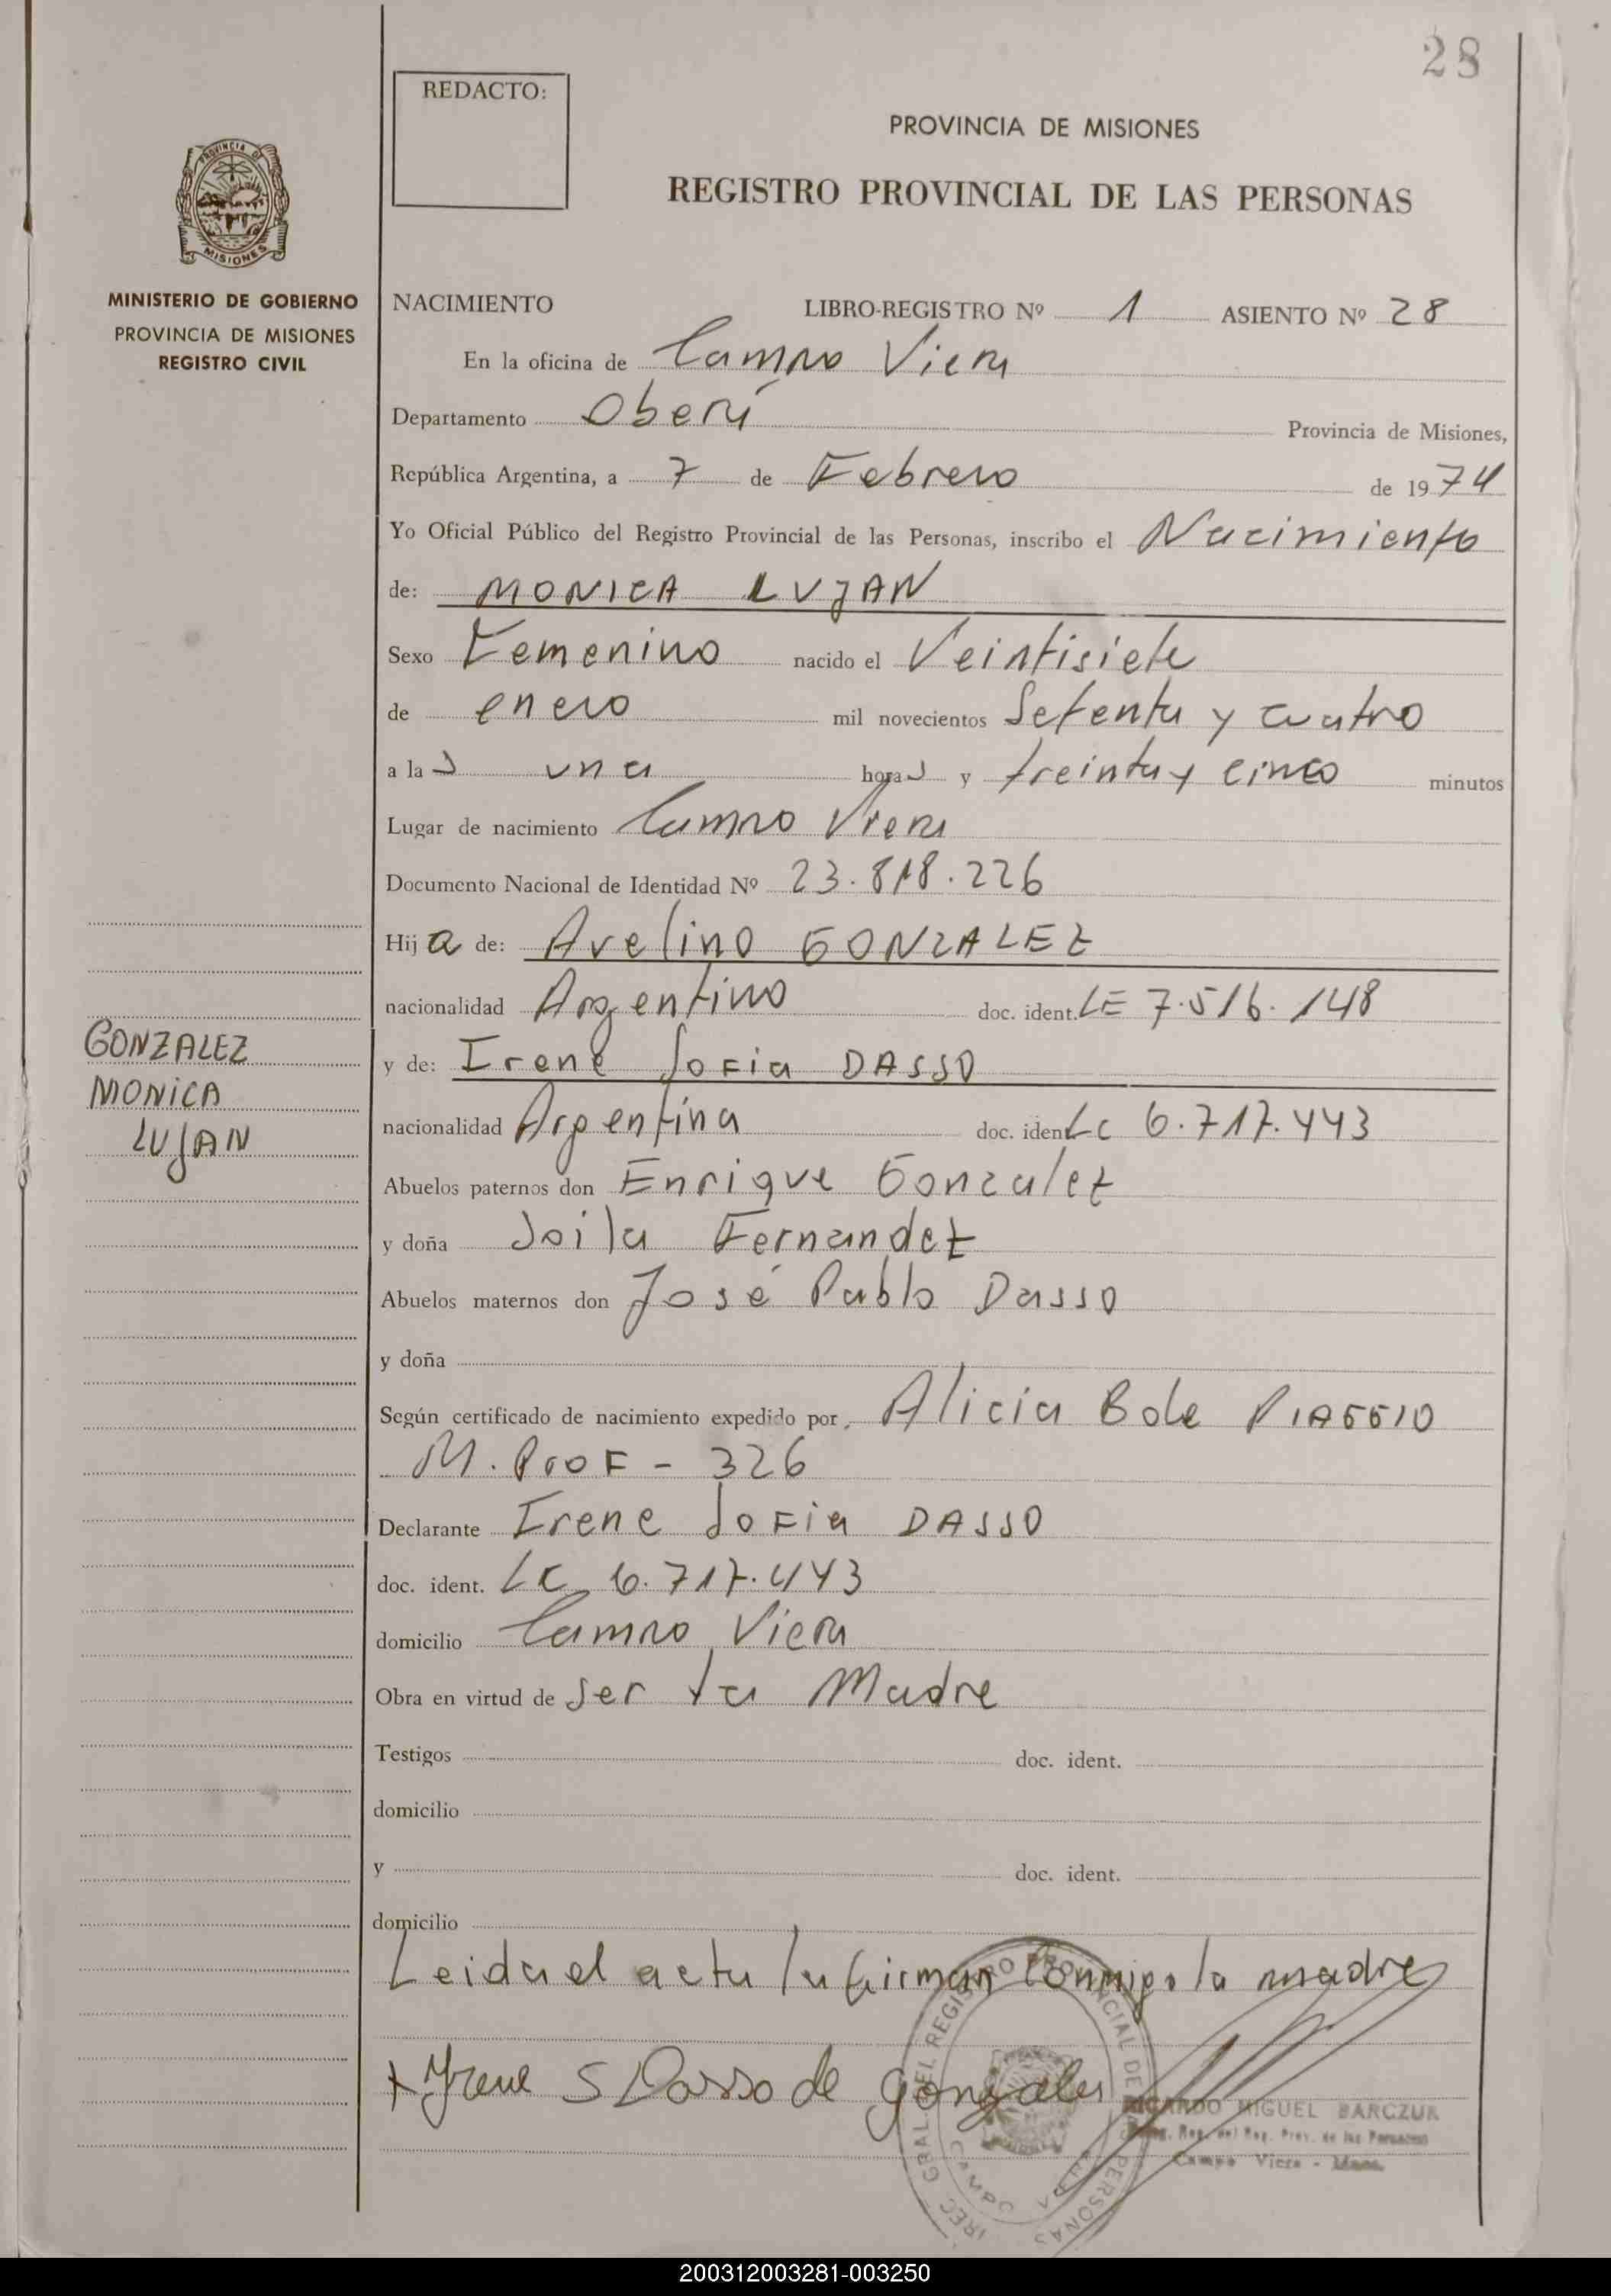 28
REDACTO:
PROVINCIA DE MISIONES
REGISTRO PROVINCIAL DE LAS PERSONAS
PROVINCIA DE
MISIONES
MINISTERIO DE GOBIERNO
PROVINCIA DE MISIONES
REGISTRO CIVIL
NACIMIENTO LIBRO-REGISTRO Nº 1 ASIENTO Nº 28
En la oficina de Campo Viera
Departamento Oberá Provincia de Misiones,
República Argentina, a 7 de Febrero de 1974
Yo Oficial Público del Registro Provincial de las Personas, inscribo el Nacimiento
de: MONICA LUJAN
Sexo Femenino nacido el Veintisiete
de enero mil novecientos Setenta y cuatro
a las una horas y treinta y cinco minutos
Lugar de nacimiento Campo Viera
Documento Nacional de Identidad Nº 23.818.226
Hija de: Avelino GONZALEZ
nacionalidad Argentino doc. ident. LE 7.516.148
y de: Irene Sofia DASSO
nacionalidad Argentina doc. ident. LC 6.717.443
GONZALEZ
MONICA
LUJAN
Abuelos paternos don Enrique Gonzalez
y doña Soila Fernandez
Abuelos maternos don José Pablo Dasso
y doña
Según certificado de nacimiento expedido por Alicia Bole PIAGGIO
M. Prof - 326
Declarante Irene Sofia DASSO
doc. ident. LC 6.717.443
domicilio Campo Viera
Obra en virtud de Ser la Madre
Testigos doc. ident.
domicilio
y doc. ident.
domicilio
Leida el acta la firman conmigo la madre
x Irene S Dasso de Gonzalez
RICARDO MIGUEL BARCZUK
Reg. del Reg. Prov. de las Personas
Campo Viera - Mnes.
DIREC. GRAL. DEL REGISTRO PROVINCIAL DE LAS PERSONAS
CAMPO VIERA
200312003281-003250